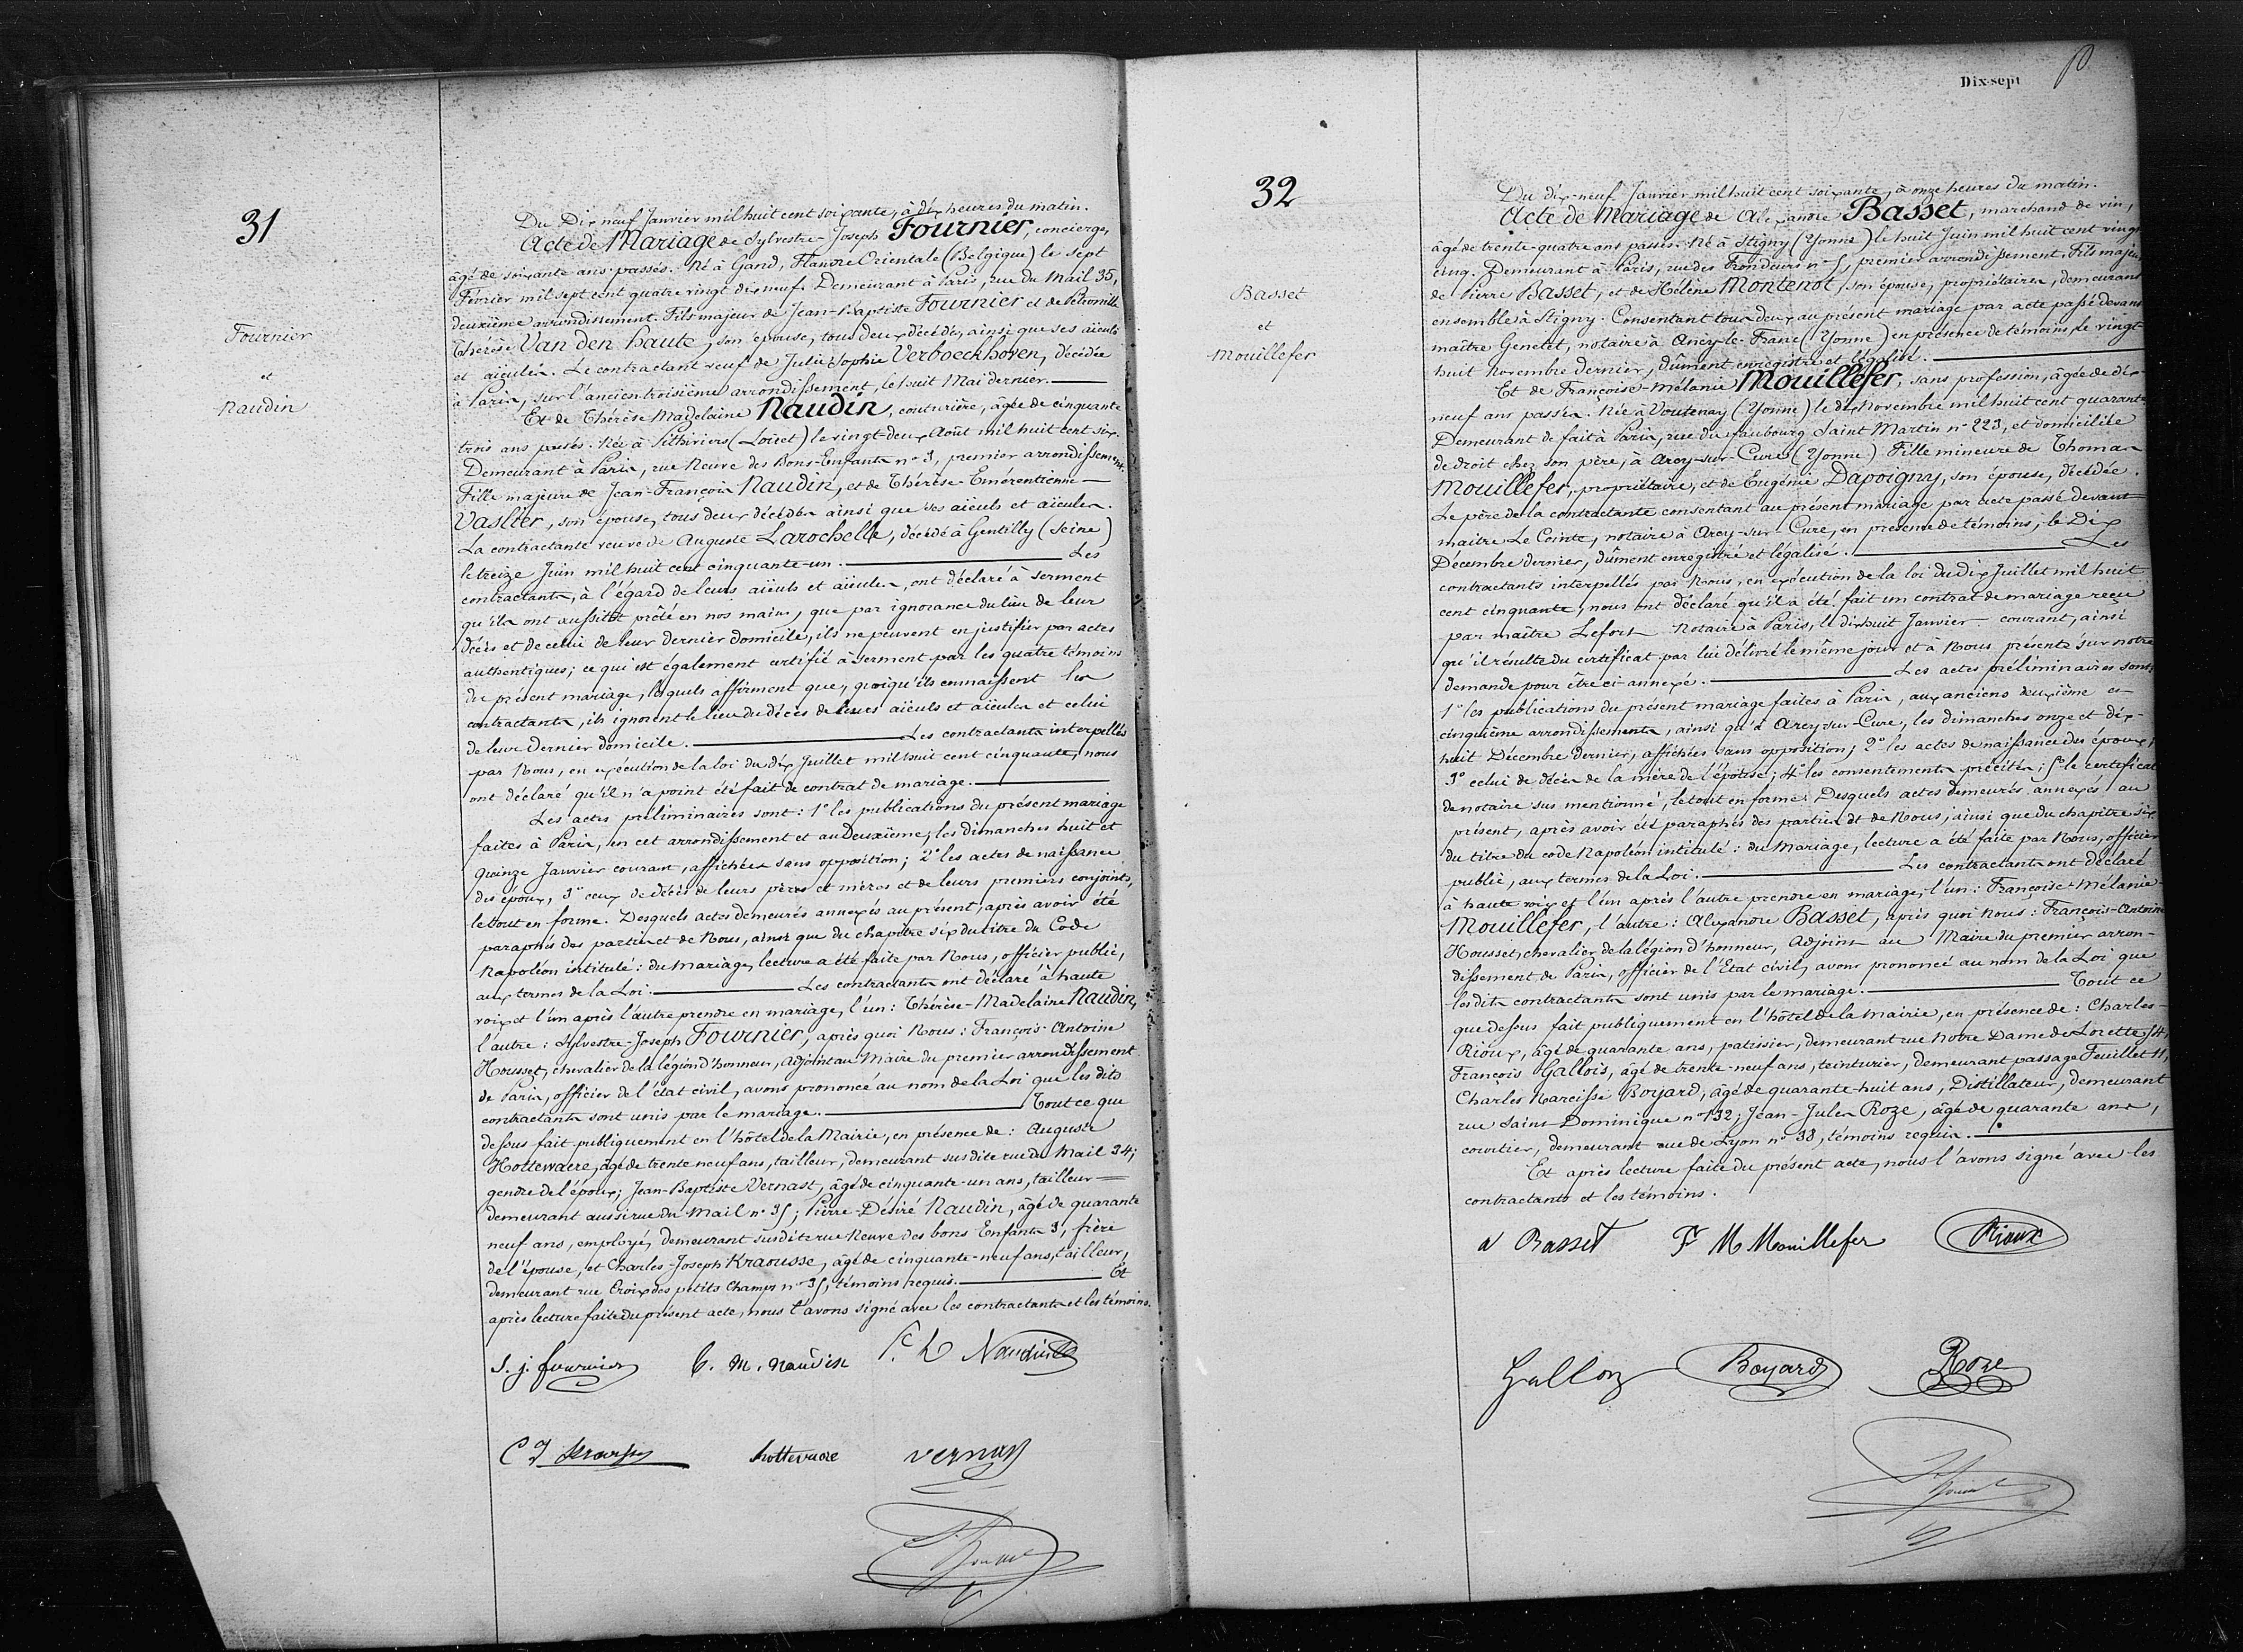 31
Fournier
et
Naudin
Du Dix neuf Janvier mil huit cent soixante, à dix heures du matin.
Acte de Mariage de Sylvestre-Joseph Fournier, concierge,
âgé de soixante ans passés. Né à Gand, Flandre Orientale (Belgique) le sept
Février mil sept cent quatre vingt dix neuf. Demeurant à Paris, rue du Mail 35,
deuxième arrondissement. Fils majeur de Jean-Baptiste Fournier et de Pétronille
Thérèse Van den haute, son épouse, tous deux décédés, ainsi que ses aïeuls
et aïeules. Le contractant veuf de Julie Sophie Verboeckhoven, décédée
à Paris, sur l'ancien troisième arrondissement, le huit Mai dernier.
Et de Thérèse Madelaine Naudin, couturière, âgée de cinquante
trois ans passés. Née à Pithiviers (Loiret) le vingt deux Août mil huit cent six.
Demeurant à Paris, rue Neuve des Bons-Enfants n° 3, premier arrondissement.
Fille majeure de Jean-François Naudin, et de Thérèse-Emérentienne
Vaslier, son épouse, tous deux décédés ainsi que ses aïeuls et aïeules.
La contractante veuve de Auguste Larochelle, décédé à Gentilly (Seine)
le treize Juin mil huit cent cinquante-un. Les
contractants, à l'égard de leurs aïeuls et aïeules, ont déclaré à serment
qu'ils ont aussitôt prêté en nos mains, que par ignorance du lieu de leur
décès et de celui de leur dernier domicile, ils ne peuvent en justifier par actes
authentiques; ce qui est également certifié à serment par les quatre témoins
du présent mariage, lesquels affirment que, quoiqu'ils connaissent les
contractants, ils ignorent le lieu du décès de leurs aïeuls et aïeules et celui
de leur dernier domicile. Les contractants interpellés
par Nous, en exécution de la loi du dix Juillet mil huit cent cinquante, nous
ont déclaré qu'il n'a point été fait de contrat de mariage.
Les actes préliminaires sont: 1° les publications du présent mariage
faites à Paris, en cet arrondissement et au Deuxième, les dimanches huit et
quinze Janvier courant, affichées sans opposition; 2° les actes de naissance
des époux, 3° ceux de décès de leurs pères et mères et de leurs premiers conjoints,
le tout en forme. Desquels actes demeurés annexés au présent, après avoir été
paraphés des parties et de Nous, ainsi que du chapitre six du titre du Code
Napoléon intitulé: du Mariage, lecture a été faite par Nous, officier public,
aux termes de la Loi. Les contractants ont déclaré à haute
voix et l'un après l'autre prendre en mariage, l'un: Thérèse-Madelaine Naudin,
l'autre: Sylvestre-Joseph Fournier, après quoi Nous: François-Antoine
Housset, chevalier de la légion d'honneur, adjoint au Maire du premier arrondissement
de Paris, officier de l'état civil, avons prononcé au nom de la Loi que les dits
contractants sont unis par le mariage. Tout ce que
dessus fait publiquement en l'hôtel de la Mairie, en présence de: Auguste
Hottewaere, âgé de trente neuf ans, tailleur, demeurant susdite rue du Mail 34;
gendre de l'époux; Jean-Baptiste Vernast, âgé de cinquante-un ans, tailleur
demeurant aussi rue du Mail n° 35; Pierre-Désiré Naudin, âgé de quarante
neuf ans, employé, demeurant susdite rue Neuve des bons Enfants 3, frère
de l'épouse, et Charles-Joseph Kraousse, âgé de cinquante-neuf ans, tailleur,
demeurant rue Croix des petits Champs n° 35, témoins requis. Et
après lecture faite du présent acte, nous l'avons signé avec les contractants et les témoins.
S. j. fournier T. M. naudin Naudin
C J Kraousse hottewaere vernast
Dix-sept
32
Basset
et
Mouillefer
Du dix-neuf Janvier mil huit cent soixante, à onze heures du matin.
Acte de Mariage de Alexandre Basset, marchand de vin,
âgé de trente-quatre ans passés. Né à Stigny (Yonne) le huit Juin mil huit cent vingt
cinq. Demeurant à Paris, rue des Frondeurs n° 5, premier arrondissement. Fils majeur
de Pierre Basset, et de Hélène Montenot, son épouse, propriétaires, demeurant
ensemble à Stigny. Consentant tous deux au présent mariage par acte passé devant
maître Genetet, notaire à Ancy-le-Franc (Yonne) en présence de témoins, le vingt
huit Novembre dernier, dûment enregistré et légalisé.
Et de Françoise-Mélanie Mouillefer, sans profession, âgée de dix-
neuf ans passés. Née à Voutenay (Yonne) le dix Novembre mil huit cent quarante
Demeurant de fait à Paris, rue du faubourg Saint Martin n° 223, et domiciliée
de droit chez son père, à Arcy-sur-Cure (Yonne) Fille mineure de Thomas
Mouillefer, propriétaire, et de Eugénie Dapoigny, son épouse, décédée.
Le père de la contractante consentant au présent mariage par acte passé devant
maître Le Cointe, notaire à Arcy-sur-Cure, en présence de témoins, le Dix
Décembre dernier, dûment enregistré et légalisé. Les
contractants interpellés par Nous, en exécution de la loi du dix Juillet mil huit
cent cinquante, nous ont déclaré qu'il a été fait un contrat de mariage reçu
par maître Lefort Notaire à Paris, le dix huit Janvier courant, ainsi
qu'il résulte du certificat par lui délivré le même jour et à Nous présenté sur notre
demande pour être ci-annexé. Les actes préliminaires sont:
1° les publications du présent mariage faites à Paris, aux anciens deuxième et
cinquième arrondissements, ainsi qu'à Arcy-sur-Cure, les dimanches onze et dix-
huit Décembre dernier, affichées sans opposition; 2° les actes de naissance des époux;
3° celui de décès de la mère de l'épouse; 4° les consentements précités; 5° le certificat
de notaire sus mentionné, le tout en forme. Desquels actes demeurés annexés au
présent, après avoir été paraphés des parties et de Nous, ainsi que du chapitre six
du titre du code Napoléon intitulé: du Mariage, lecture a été faite par Nous, officier
public, aux termes de la Loi. Les contractants ont déclaré
à haute voix et l'un après l'autre prendre en mariage, l'un: Françoise-Mélanie
Mouillefer, l'autre: Alexandre Basset, après quoi Nous: François-Antoine
Housset, chevalier de la légion d'honneur, Adjoint au Maire du premier arron-
dissement de Paris, officier de l'Etat civil, avons prononcé au nom de la Loi que
les dits contractants sont unis par le mariage. Tout ce
que dessus fait publiquement en l'hôtel de la Mairie, en présence de: Charles
Rioux, âgé de quarante ans, patissier, demeurant rue Notre Dame de Lorette 54,
François Gallois, âgé de trente-neuf ans, teinturier, demeurant passage Feuillet 11,
Charles Narcisse Boyard, âgé de quarante-huit ans, Distillateur, demeurant
rue Saint Dominique n° 132; Jean-Jules Roze, âgé de quarante ans,
courtier, demeurant rue de Lyon n° 38, témoins requis.
Et après lecture faite du présent acte, nous l'avons signé avec les
contractants et les témoins.
a Basset F M Mouillefer Rioux
Gallois Boyard Roze